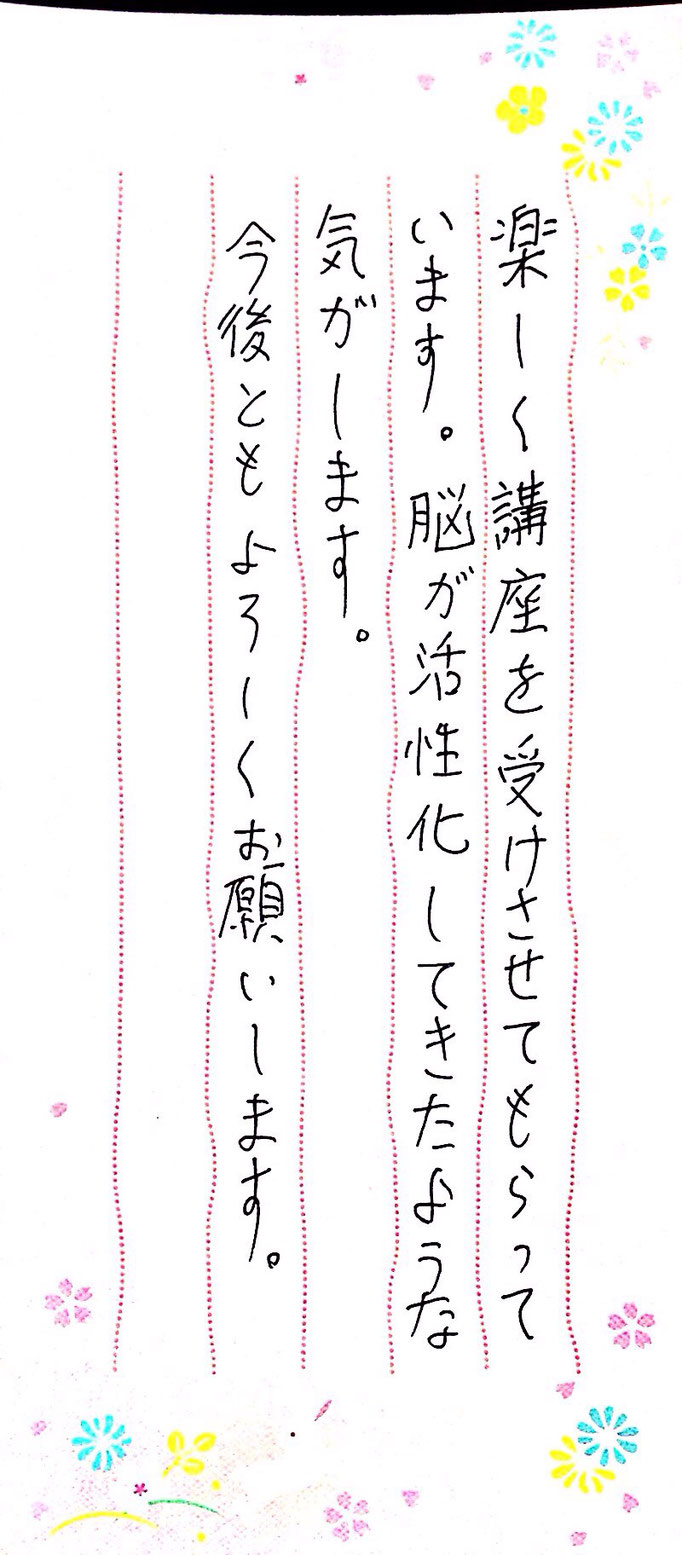 楽しく講座を受けさせてもらって
います。脳が活性化してきたような
気がします。
今後ともよろしくお願いします。